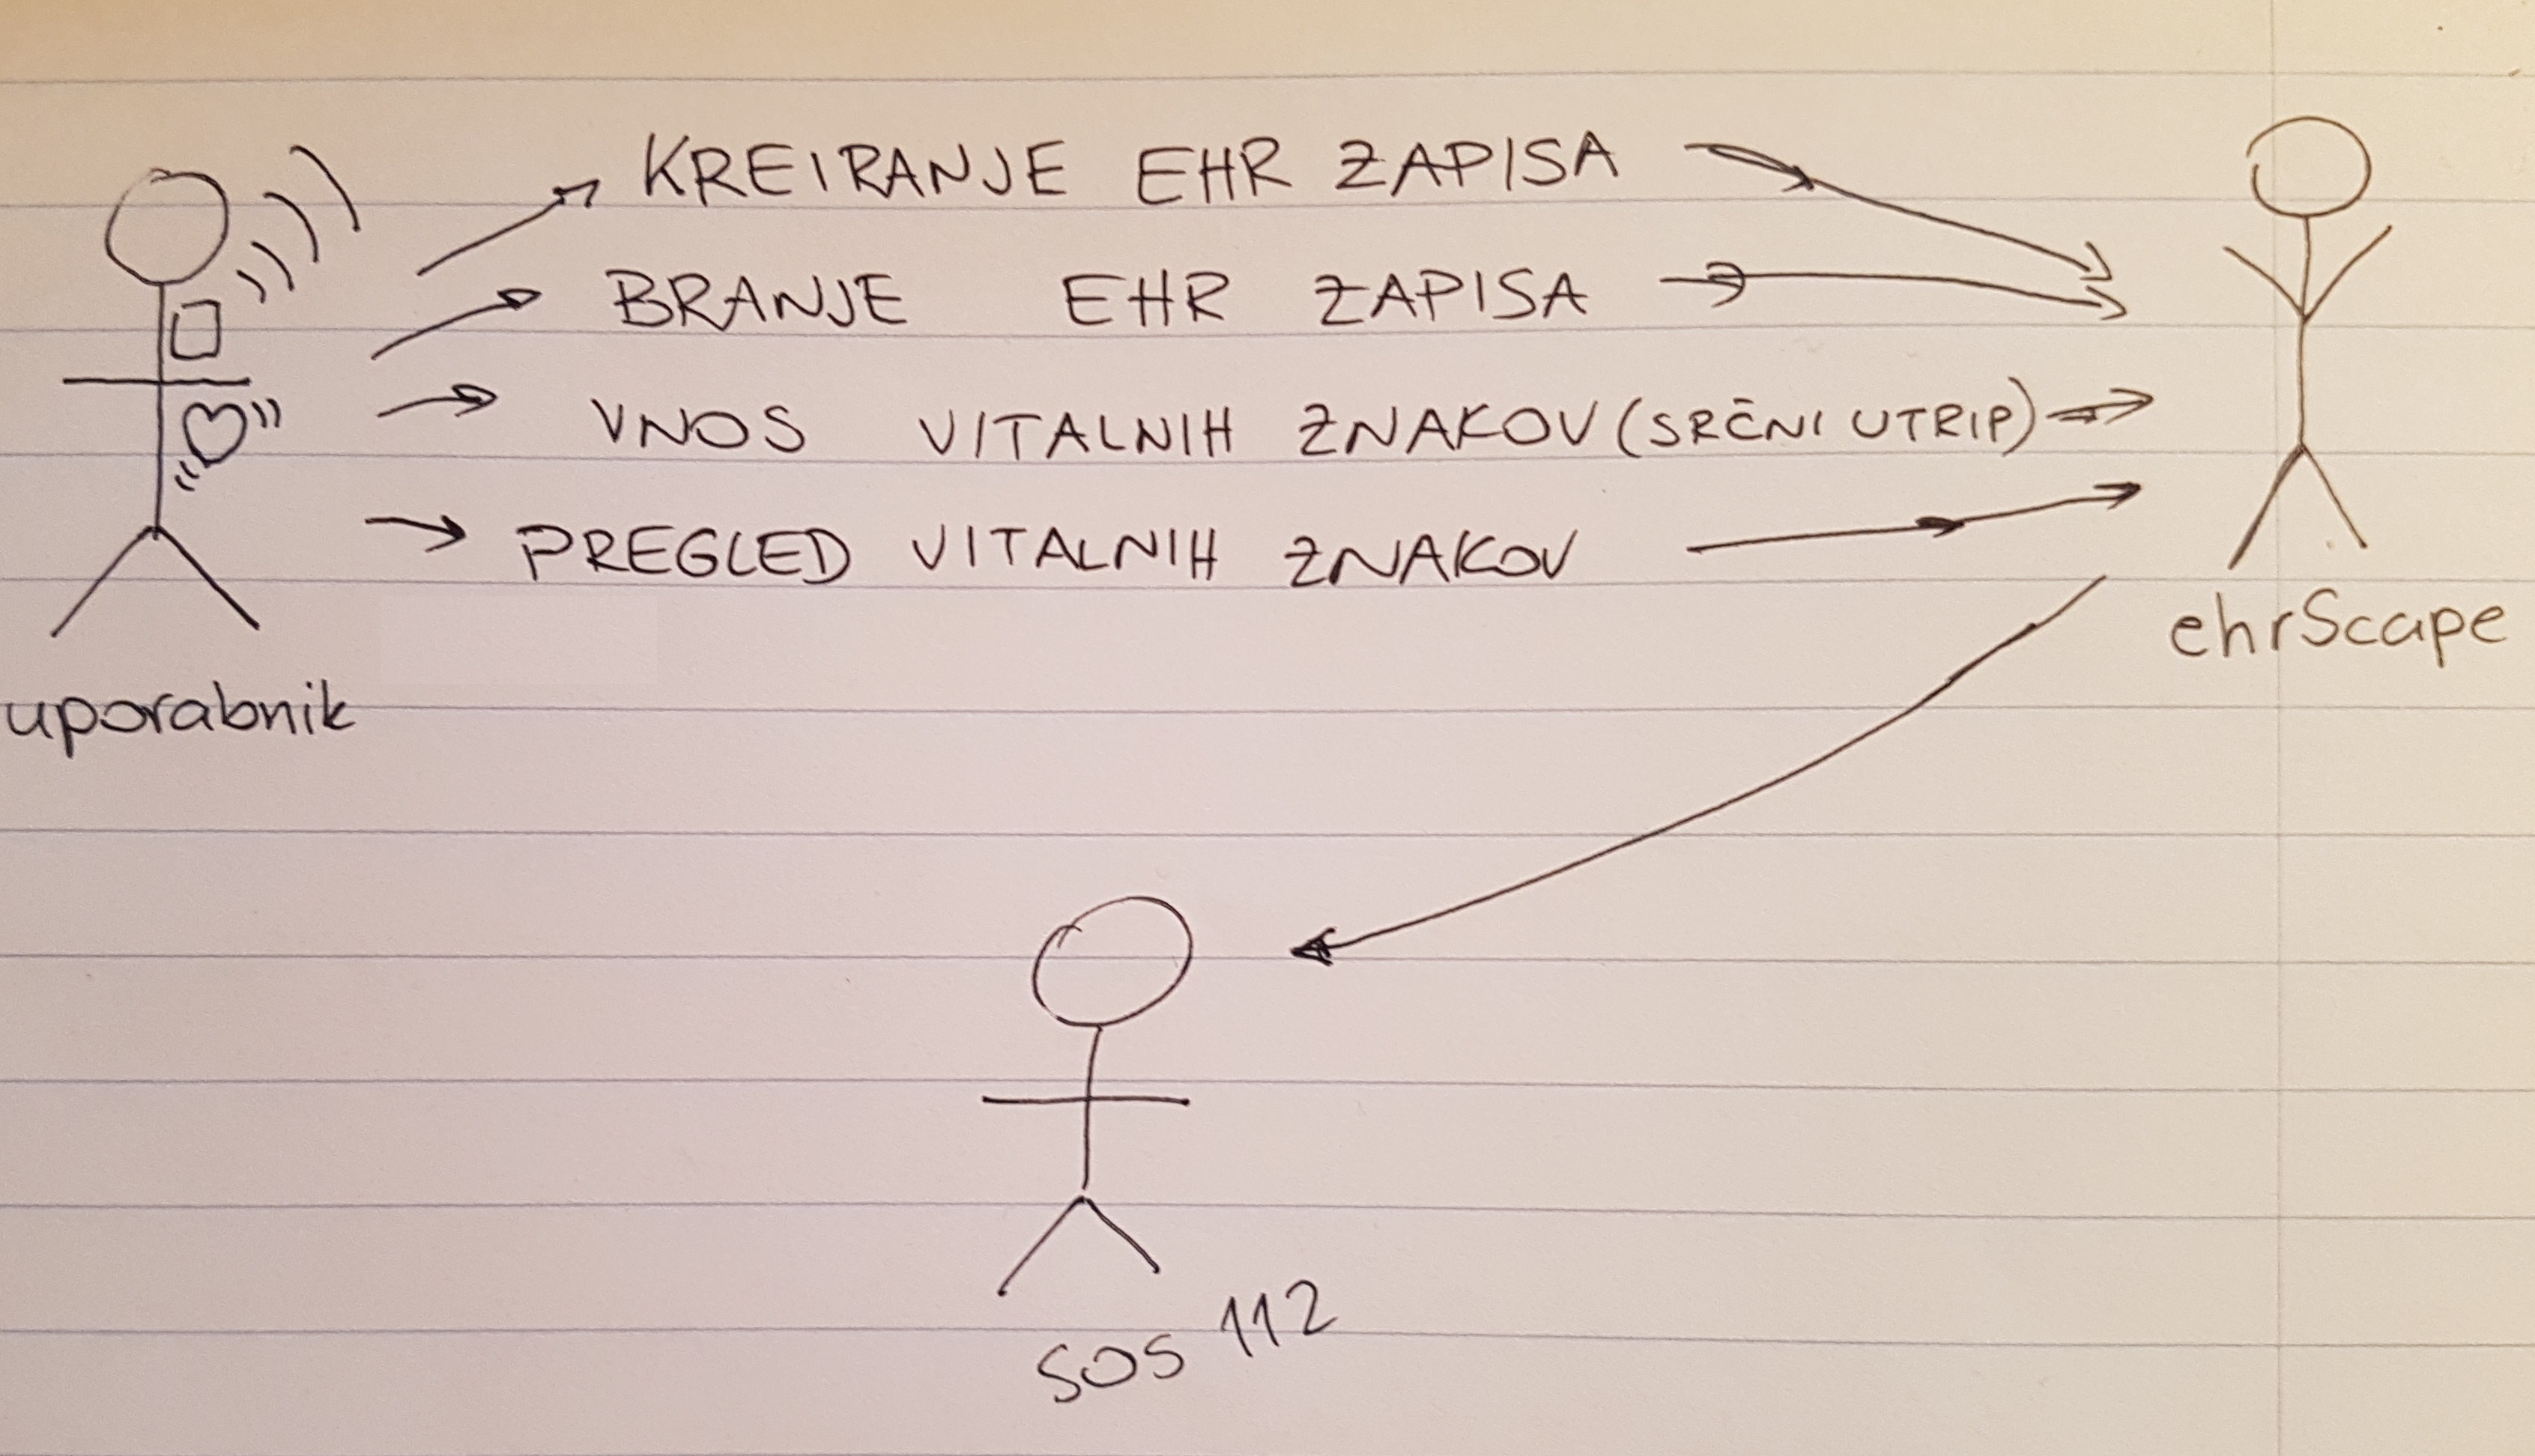 KREIRANJE EHR ZAPISA
BRANJE EHR ZAPISA
VNOS VITALNIH ZNAKOV (SRČNI UTRIP)
PREGLED VITALNIH ZNAKOV
ehrScape
uporabnik
SOS 112